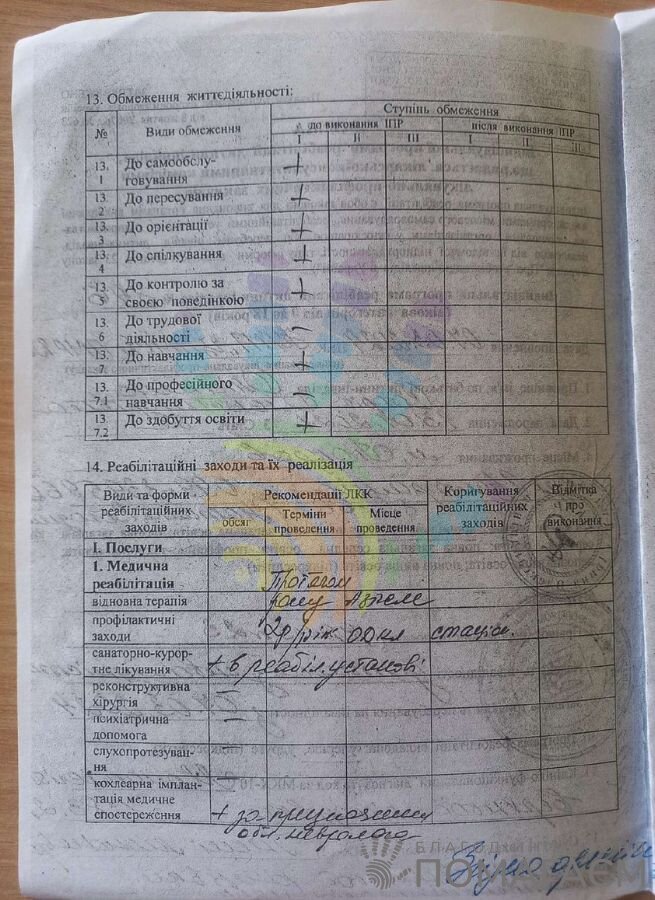 13. Обмеження життєдіяльності:
№ Види обмеження Ступінь обмеження
до виконання ІПР після виконання ІПР
I II III I II III
13.1 До самообслу-
говування +
13.2 До пересування +
13.3 До орієнтації +
13.4 До спілкування +
13.5 До контролю за
своєю поведінкою +
13.6 До трудової
діяльності –
13.7 До навчання +
13.7.1 До професійного
навчання –
13.7.2 До здобуття освіти +
14. Реабілітаційні заходи та їх реалізація
Види та форми реабілітаційних заходів Рекомендації ЛКК Коригування реабілітаційних заходів Відмітка про виконання
обсяг Терміни проведення Місце проведення
І. Послуги
1. Медична
реабілітація Протягом
відновна терапія року
профілактичні
заходи 2р/рік
санаторно-курор-
тне лікування + в реабіл. установі
реконструктивна
хірургія –
психіатрична
допомога –
слухопротезуван-
ня
кохлеарна імплан- –
тація медичне
спостереження + за призначенням
обл. невролога